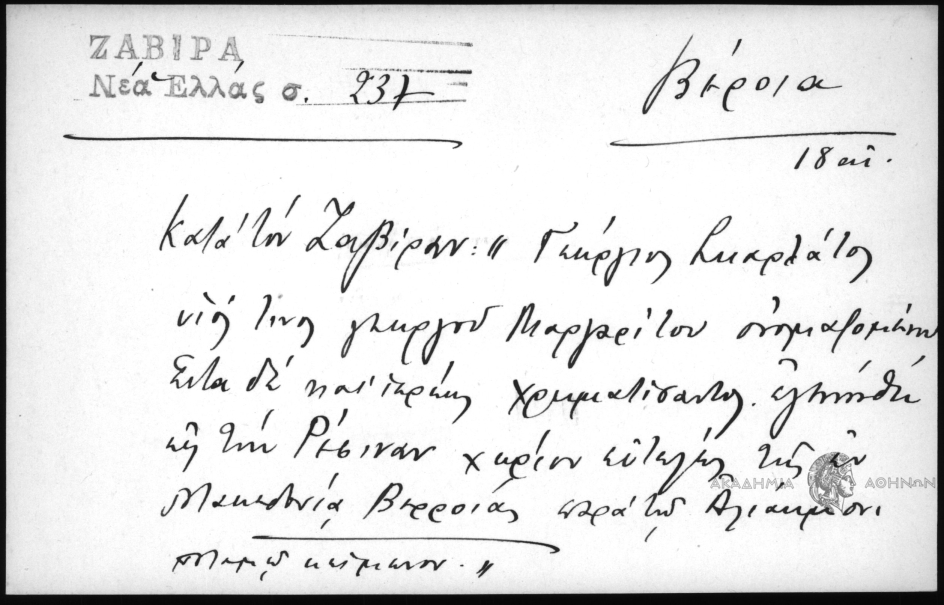 ΖΑΒΙΡΑ
Νέα Ἑλλάς σ. 237
Βέροια
18 αι.
Κατά τόν Ζαβίραν: " Γεώργιος Σκαρλάτος
υἱός τινος γεωργοῦ Μαργαρίτου ὀνομαζομένου
εἶτα δέ καί ἱερέως χρηματίσαντος. ἐγεννήθη
εἰς τήν Ρέσιναν χωρίον εὐτελές τῆς ἐν
Μακεδονίᾳ Βερροίας παρά τῷ Ἁλιάκμονι
ποταμῷ κείμενον. "
ΑΚΑΔΗΜΙΑ ΑΘΗΝΩΝ